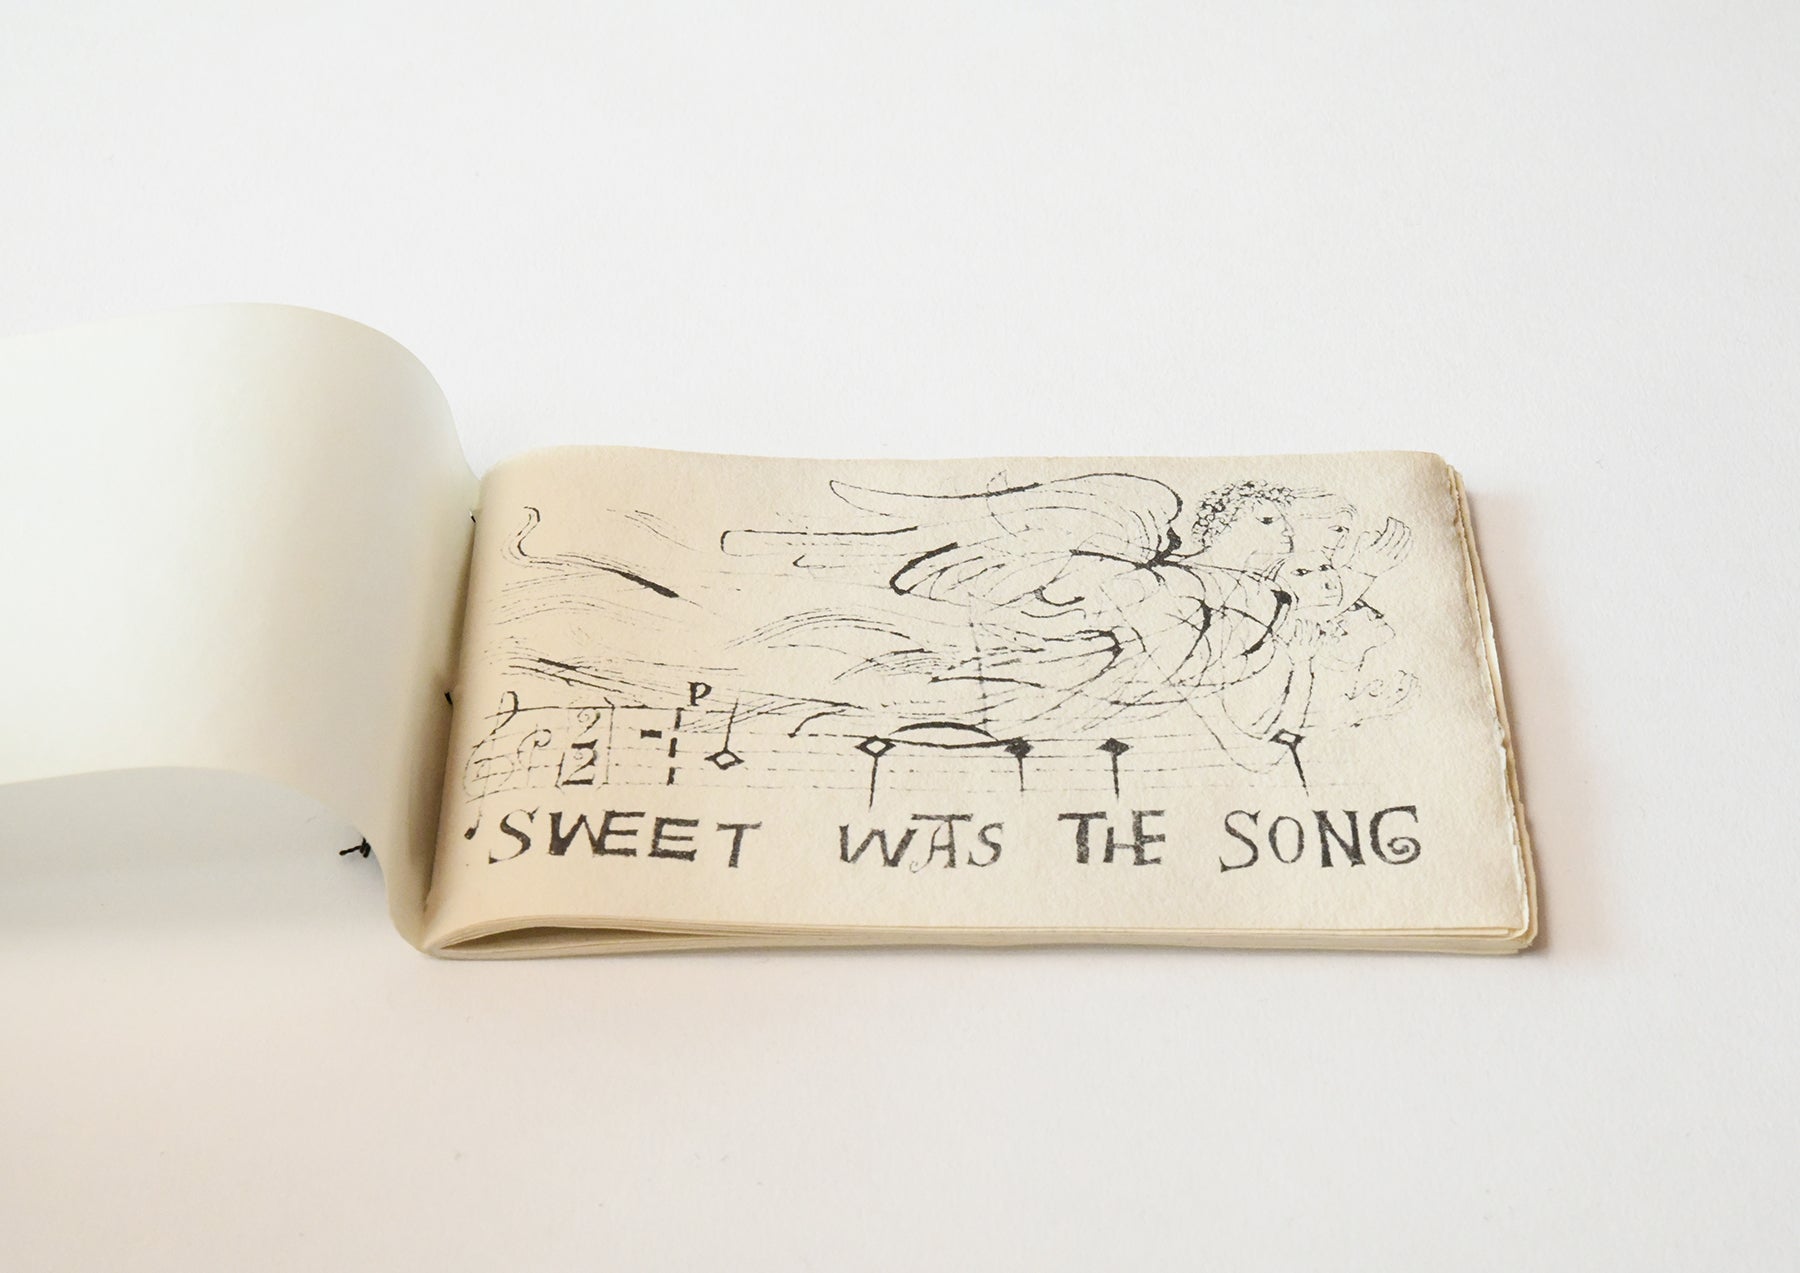 P
2
2
SWEET WAS THE SONG